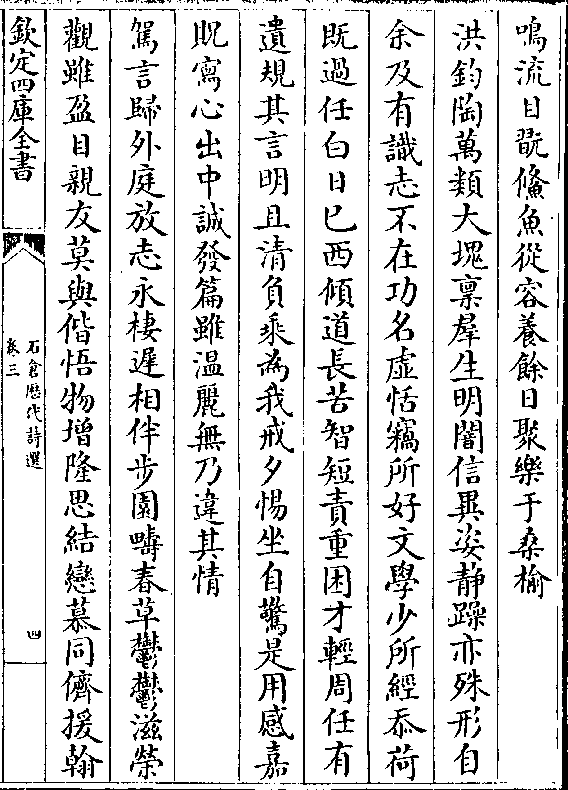 鳴流目翫鯈魚從容養餘日聚樂于桑榆
洪鈞陶萬類大塊稟羣生明闇信異姿静躁亦殊形自
余及有識志不在功名虚恬竊所好文學少所經忝荷
既過任白日已西傾道長苦智短責重困才輕周任有
遺規其言明且清負乘為我戒夕惕坐自驚是用感嘉
貺寫心出中誠發篇雖温麗無乃違其情
駕言歸外庭放志永棲遲相伴步園疇春草鬱鬱滋榮
觀雖盈目親友莫與偕悟物增隆思結戀慕同儕援翰
欽定四庫全書
石倉歷代詩選
卷三
四